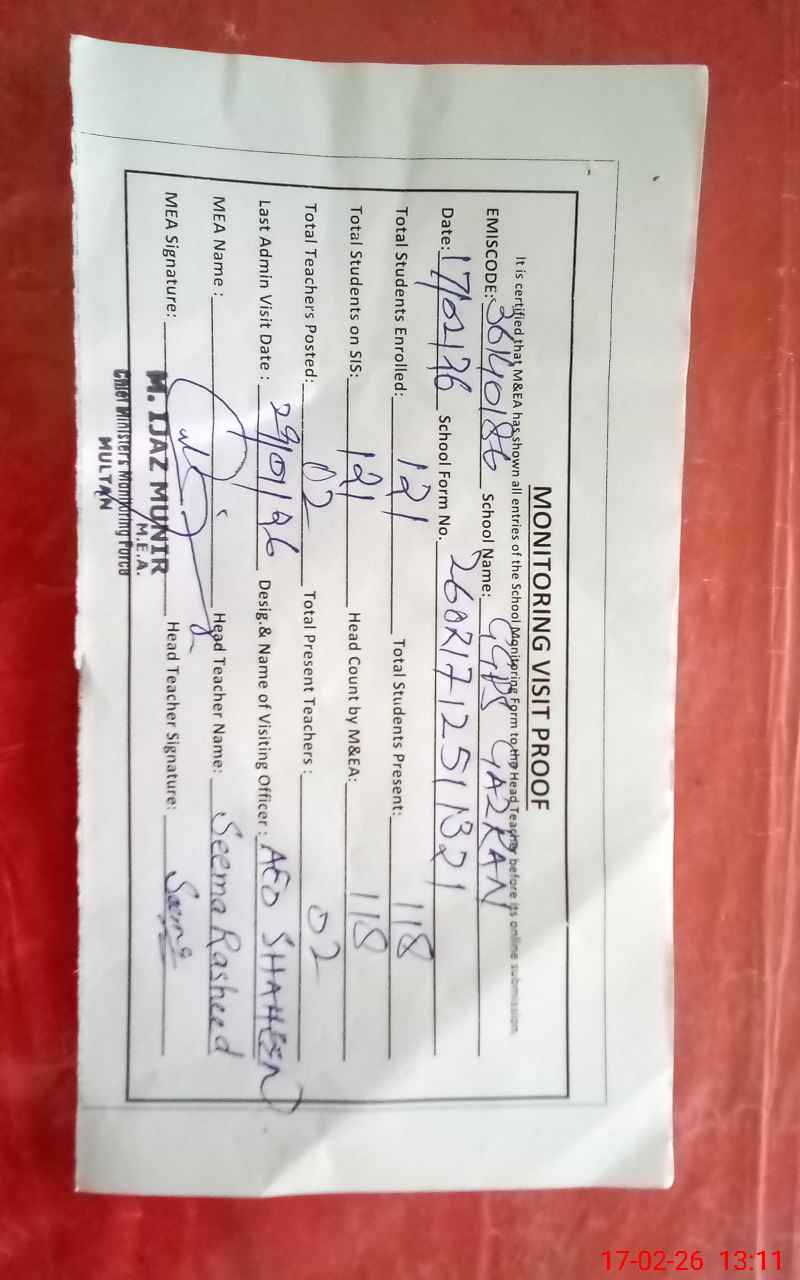 MONITORING VISIT PROOF
It is certified that M&EA has shown all entries of the School Monitoring Form to the Head Teacher before its online submission.
EMISCODE: 36140186 School Name: GGPS GAZRAN
Date: 17/02/26 School Form No. 26021712511321
Total Students Enrolled: 121 Total Students Present: 118
Total Students on SIS: 121 Head Count by M&EA: 118
Total Teachers Posted: 02 Total Present Teachers : 02
Last Admin Visit Date : 29/01/26 Desig.& Name of Visiting Officer : AEO SHAHEEN
MEA Name : Head Teacher Name: Seema Rasheed
MEA Signature: Head Teacher Signature: Seema
M. IJAZ MUNIR
M.E.A.
Chief Minister's Monitoring Force
MULTAN
17-02-26 13:11